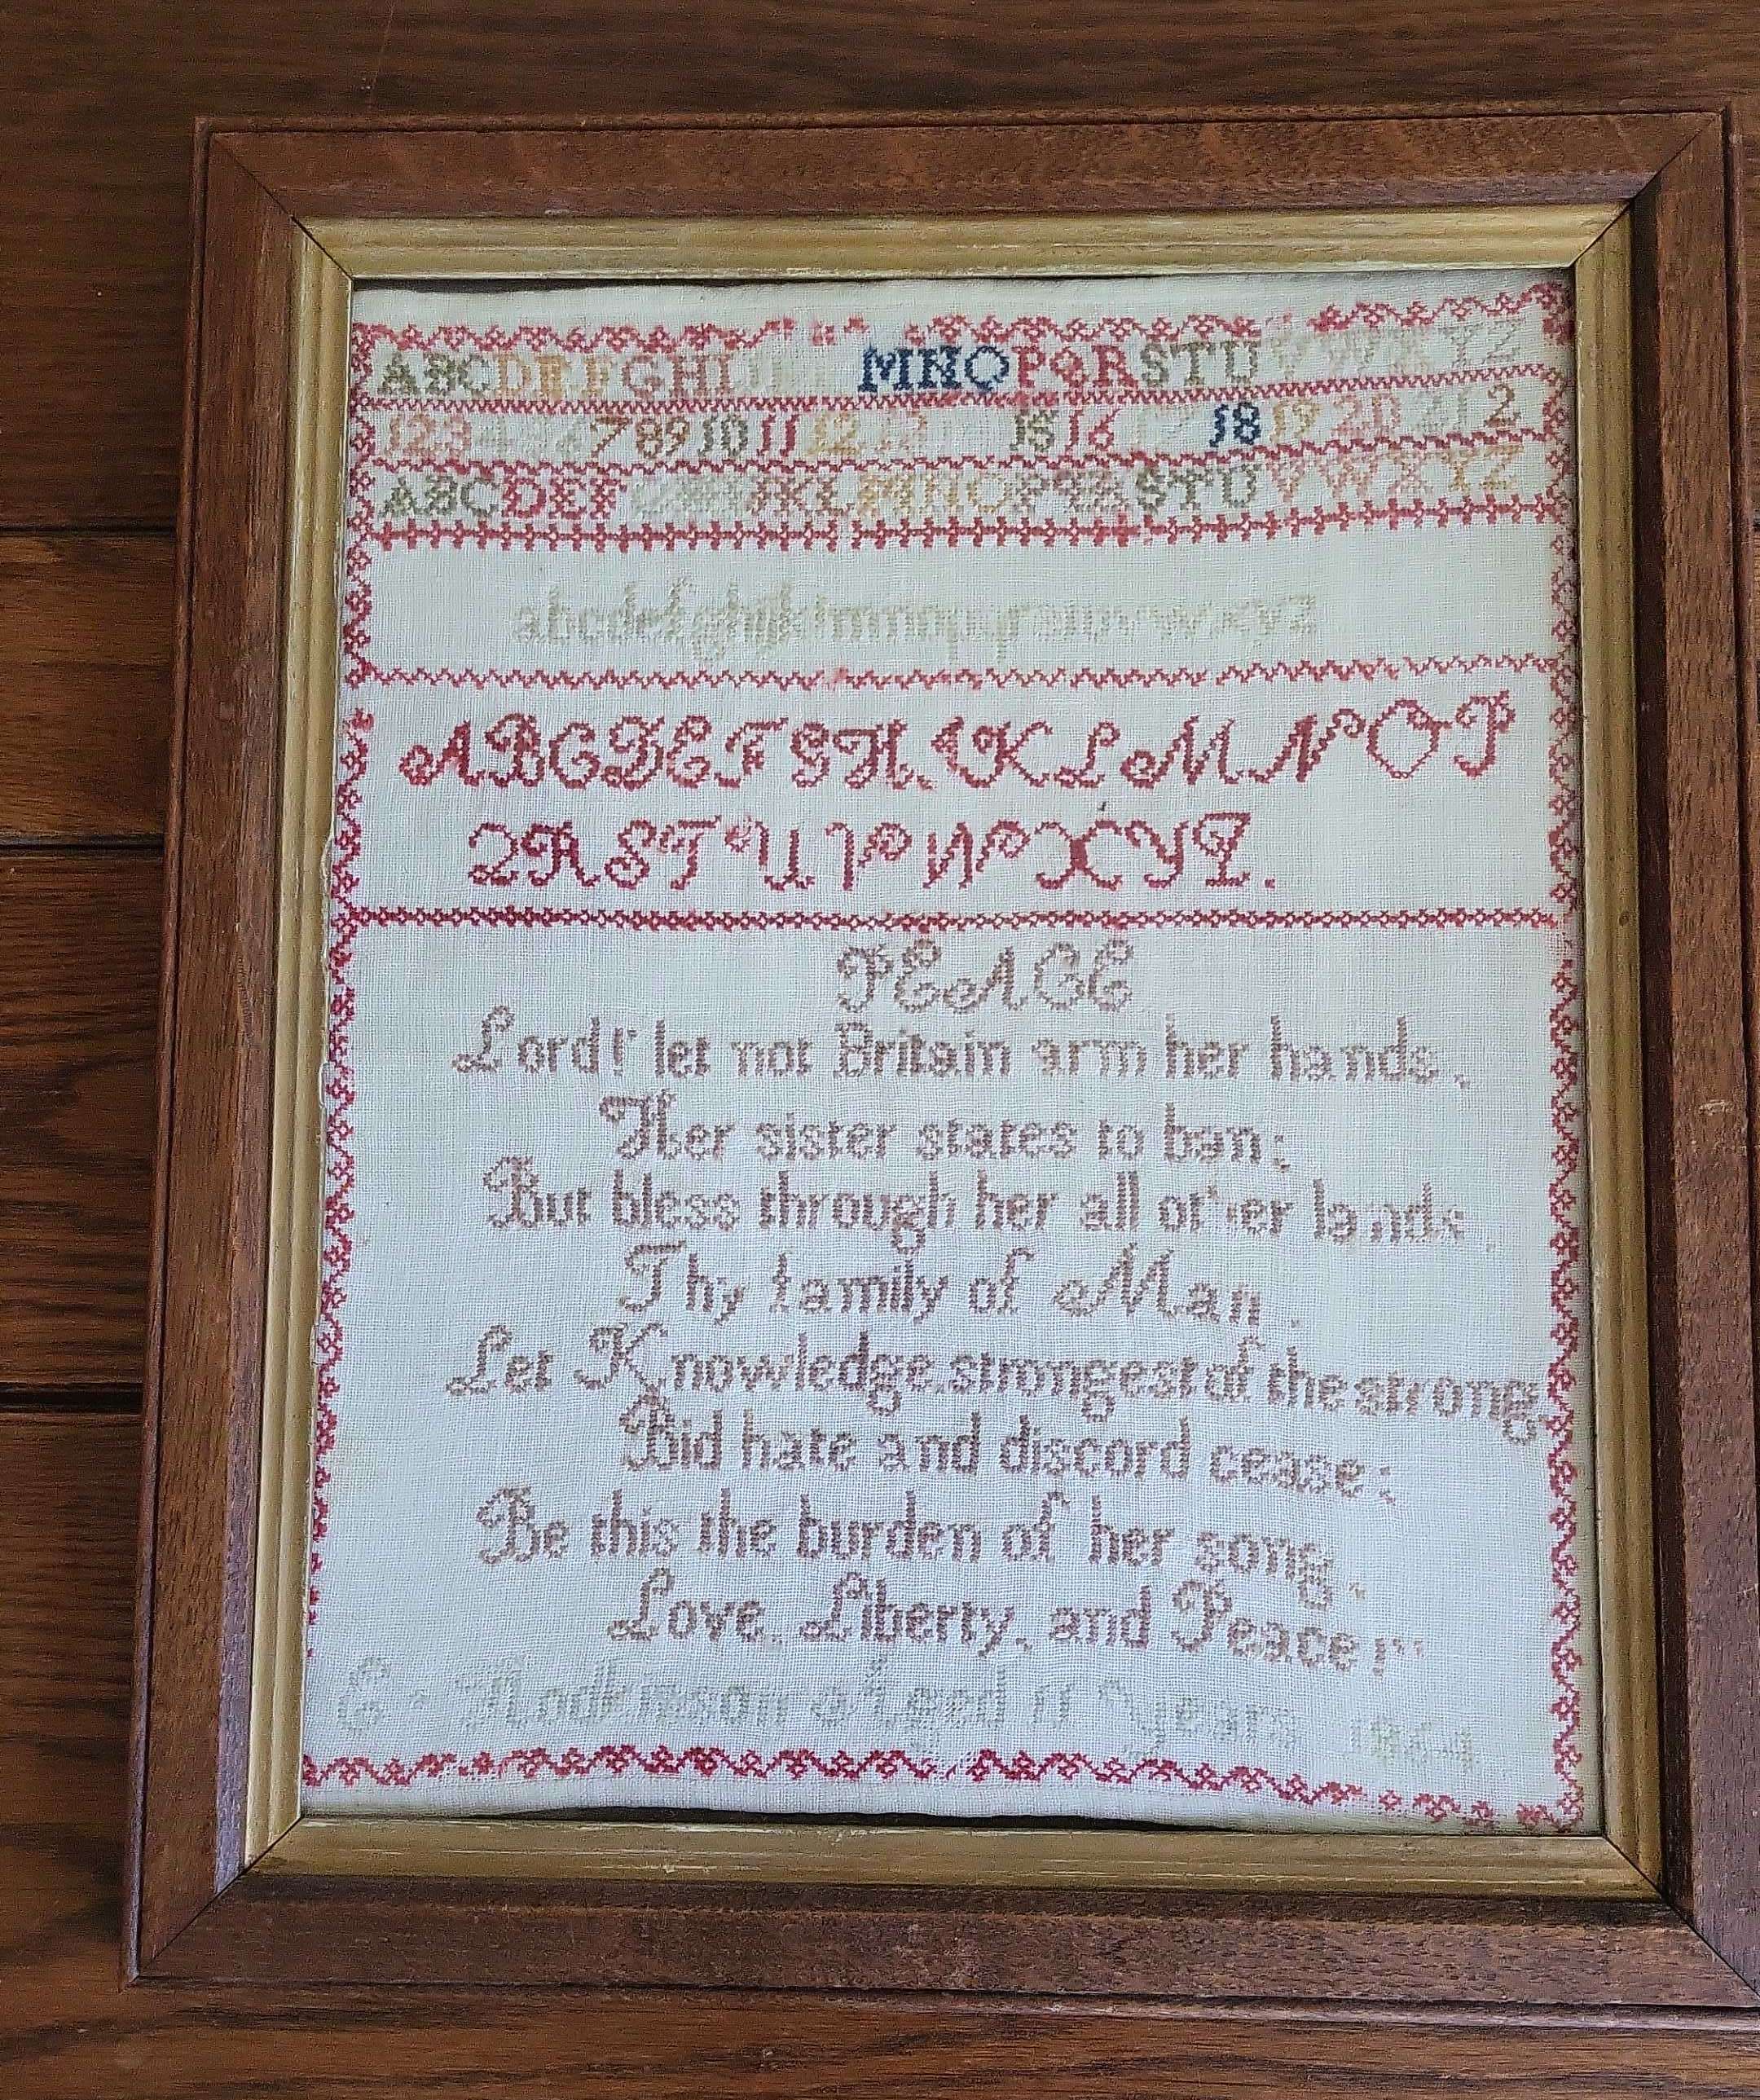 ABCDEFGHI MNOPQRSTUVWXYZ
123 7 89 10 11 12 15 16 18 19 20 21 2
ABCDEFGHIJKLMNOPQRSTUVWXYZ
abcdefghijklmnopqrstuvwxyz
ABCDEFGHIKLMNOP
QRSTUVWXYZ.
PEACE
Lord!" let not Britain arm her hands,
Her sister states to ban;
But bless through her all other lands,
Thy family of Man.
Let Knowledge, strongest of the strong
Bid hate and discord cease;
Be this the burden of her song,
Love, Liberty, and Peace!"
E. Hodkinson Aged 11 Years 1864